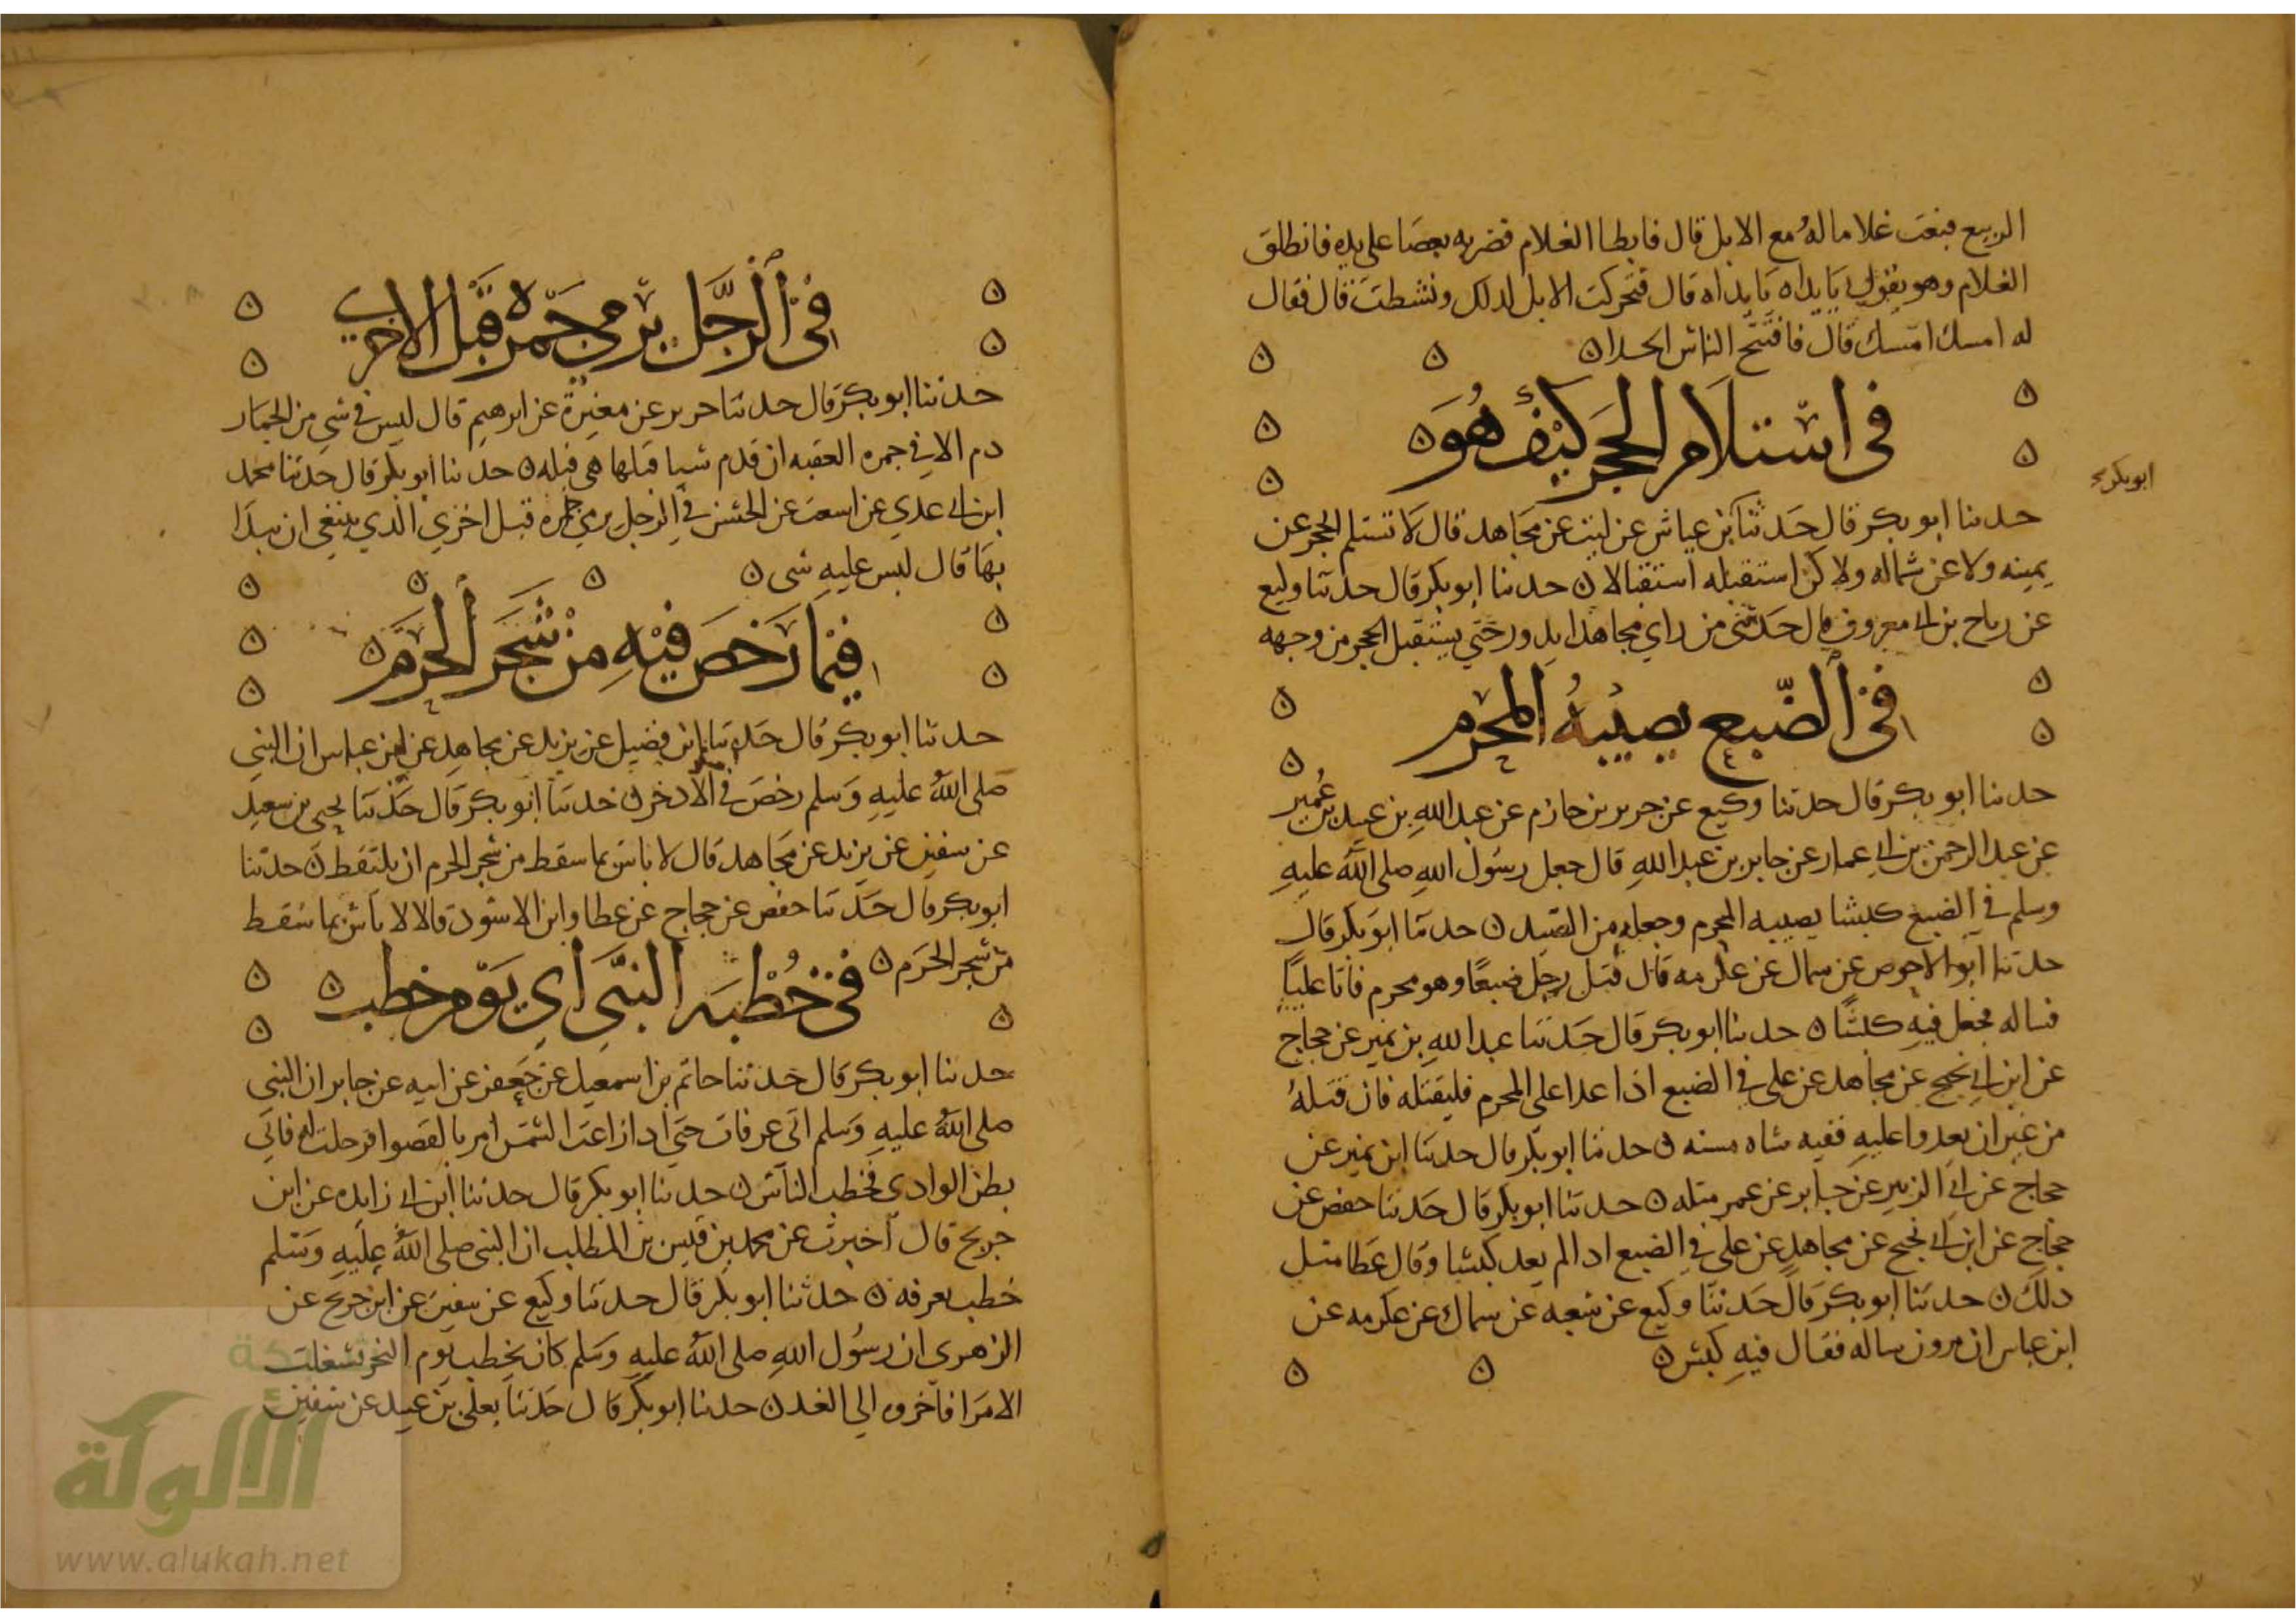 الربيع فبعث غلاما له مع الابل قال فابطا الغلام فضربه بعصا على يده فانطلق
الغلام وهو يقول يا يداه يا يداه قال فتحركت الابل لذلك ونشطت قال فقال
له امسك امسك قال فافتتح الناس الحدا ن
في استلام الحجر كيف هو ن
حدثنا ابو بكر قال حدثنا بن عياش عن ليث عن مجاهد قال لا تستلم الحجر عن
ابوبكر
يمينه ولا عن شماله ولاكن استقبله استقبالا ن حدثنا ابو بكر قال حدثنا وكيع
عن رباح بن ابي معروف قال حدثني من راي مجاهدا يدور حتي يستقبل الحجر من وجهه
في الضبع يصيبه المحرم
حدثنا ابو بكر قال حدثنا وكيع عن جرير بن حازم عن عبد الله بن عبيد بن عمير
عن عبد الرحمن بن ابي عمار عن جابر بن عبد الله قال جعل رسول الله صلى الله عليه
وسلم في الضبع كبشا يصيبه المحرم وجعله من الصيد ن حدثنا ابو بكر قال
حدثنا ابو الاحوص عن سماك عن عكرمه قال قتل رجل ضبعا وهو محرم فاتا عليا
فساله فجعل فيه كبشا ن حدثنا ابو بكر قال حدثنا عبد الله بن نمير عن حجاج
عن ابن ابي نجيح عن مجاهد عن علي في الضبع اذا عدا على المحرم فليقتله فان قتله
من غير ان يعدوا عليه ففيه شاه مسنه ن حدثنا ابو بكر قال حدثنا ابن نمير عن
حجاج عن ابي الزبير عن جابر عن عمر مثله ن حدثنا ابو بكر قال حدثنا حفص عن
حجاج عن ابن ابي نجيح عن مجاهد عن علي في الضبع اذا لم يعد كبشا وقال عطا مثل
ذلك ن حدثنا ابو بكر قال حدثنا وكيع عن شعبه عن سماك عن عكرمه عن
ابن عباس ان مرون ساله فقال فيه كبش ن
في الرجل يرمي جمرة قبل الاخرى
حدثنا ابو بكر قال حدثنا جرير عن مغيرة عن ابرهيم قال ليس في شي من الجمار
دم الا في جمره العقبه ان قدم شيا قبلها هي قبله ن حدثنا ابو بكر قال حدثنا محمد
ابن ابي عدي عن اسعث عن الحسن في الرجل يرمي جمرة قبل اخري الذي ينبغي ان يبدا
بها قال ليس عليه شى ن
فيما رخص فيه من شجر الحرم ن
حدثنا ابو بكر قال حدثنا ابن فضيل عن يزيد عن مجاهد عن ابن عباس ان النبي
صلى الله عليه وسلم رخص في الاذخر ن حدثنا ابو بكر قال حدثنا يحيى بن سعيد
عن سفين عن يزيد عن مجاهد قال لا باس بما سقط من شجر الحرم ان يلتقط ن حدثنا
ابو بكر قال حدثنا حفص عن حجاج عن عطا وابن الاسود قالا لا باس بما سقط
من شجر الحرم ن
في خطبة النبي اي يوم خطب ن
حدثنا ابو بكر قال حدثنا حاتم بن اسمعيل عن جعفر عن ابيه عن جابر ان النبي
صلى الله عليه وسلم اتى عرفات حتي اذا زاعت الشمس امر بالقصوا فرحلت له فاتي
بطن الوادى فخطب الناس ن حدثنا ابو بكر قال حدثنا ابن ابي زايده عن ابن
جريج قال اخبرت عن محمد بن قيس بن المطلب ان النبى صلى الله عليه وسلم
خطب بعرفه ن حدثنا ابو بكر قال حدثنا وكيع عن سفين عن ابن جريج عن
الزهري ان رسول الله صلى الله عليه وسلم كان يخطب يوم النحر فشغلت
الامرا فاخروه الي الغد ن حدثنا ابو بكر قال حدثنا يعلى بن عبيد عن سفين
الألوكة
www.alukah.net